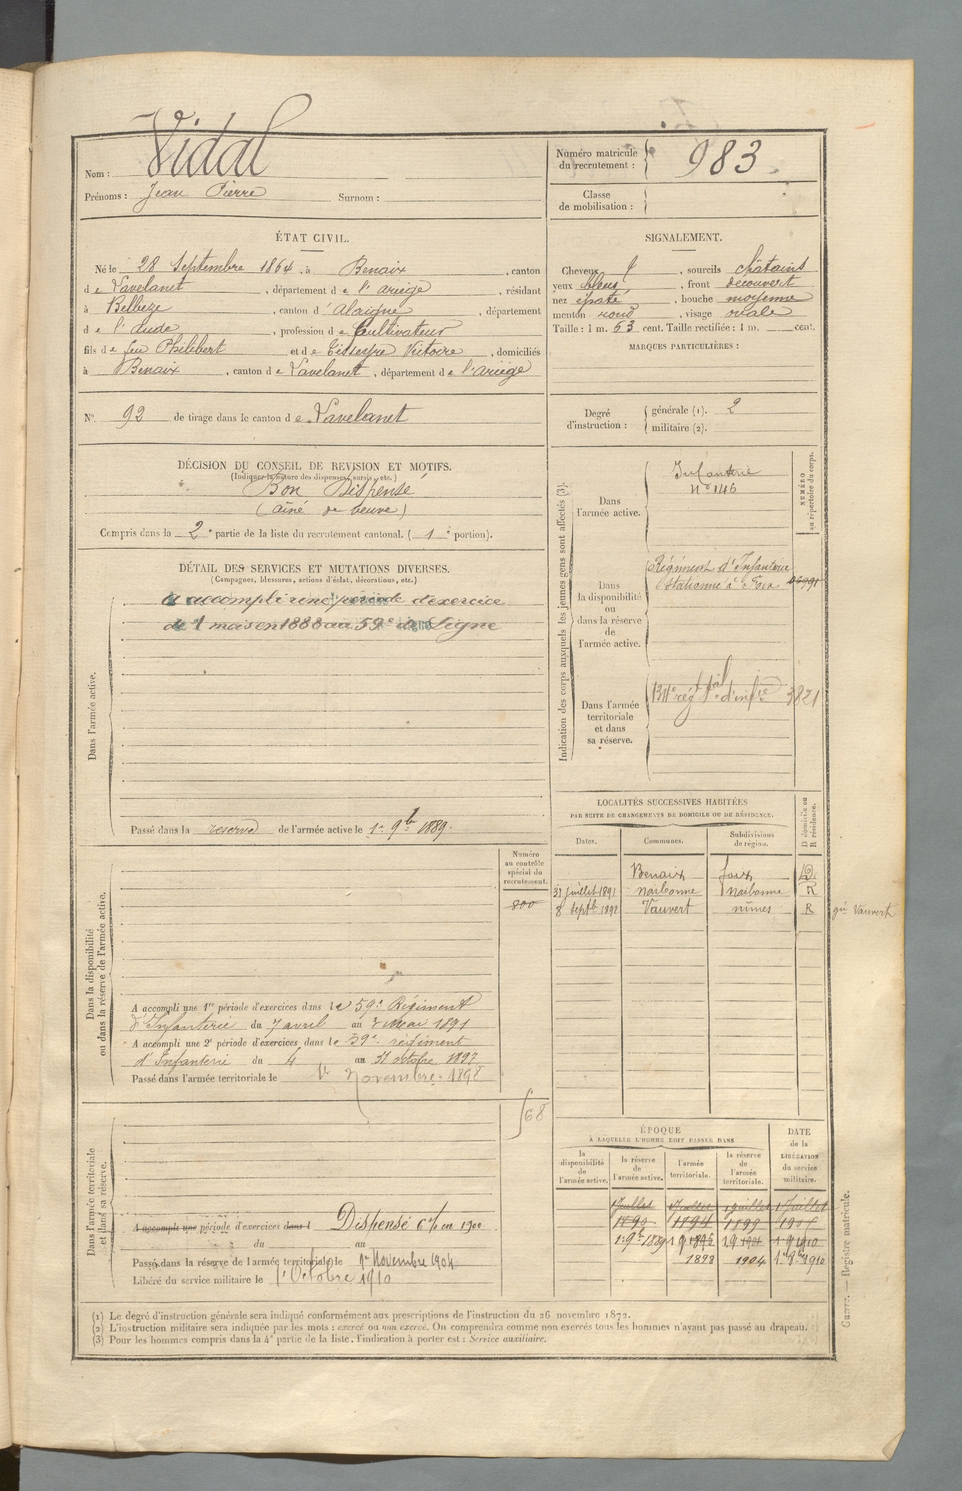 Nom : Vidal
Prénoms : Jean Pierre Surnom :
Numéro matricule du recrutement : 983
Classe de mobilisation :
ÉTAT CIVIL.
Né le 28 Septembre 1864, à Benaix, canton
de Lavelanet, département de l'ariège, résidant
à Belbèze, canton d'alaigne, département
de l'aude, profession de Cultivateur
fils de feu Philibert et de Tisseyre Victoire, domiciliés
à Benaix, canton de Lavelanet, département de l'ariège
SIGNALEMENT.
Cheveux, sourcils châtains
yeux bleus, front découvert
nez épaté, bouche moyenne
menton rond, visage ovale
Taille : 1 m. 63 cent. Taille rectifiée : 1 m. cent.
MARQUES PARTICULIÈRES :
N° 92 de tirage dans le canton de Lavelanet
Degré d'instruction : générale (1). 2
militaire (2).
DÉCISION DU CONSEIL DE REVISION ET MOTIFS.
(Indiquer la nature des dispenses, sursis, etc.)
Bon Dispensé
(aîné de veuve)
Compris dans la 2e partie de la liste du recrutement cantonal. (1e portion).
DÉTAIL DES SERVICES ET MUTATIONS DIVERSES.
(Campagnes, blessures, actions d'éclat, décorations, etc.)
Dans l'armée active.
a accompli une période d'exercice
de 1 mois en 1888 au 59e de Ligne
Passé dans la réserve de l'armée active le 1er 9bre 1889.
Indication des corps auxquels les jeunes gens sont affectés (3).
NUMÉRO au répertoire du corps.
Dans l'armée active.
Infanterie
N° 146
Dans la disponibilité ou dans la réserve de l'armée active.
Régiment d'Infanterie
stationné à Foix
Dans l'armée territoriale et dans sa réserve.
3821
LOCALITÉS SUCCESSIVES HABITÉES
PAR SUITE DE CHANGEMENTS DE DOMICILE OU DE RÉSIDENCE.
D domicile ou R résidence.
Dates. Communes. Subdivisions de région.
Benaix Foix D.
31 juillet 1891 Narbonne Narbonne R
8 septb 1892 Vauvert nîmes R
Vauvert
Numéro au contrôle spécial du recrutement.
800
Dans la disponibilité ou dans la réserve de l'armée active.
A accompli une 1re période d'exercices dans le 59e Régiment
d'Infanterie du 7 avril au 4 mai 1891
A accompli une 2e période d'exercices dans le régiment
d'Infanterie du 4 au 31 octobre 1897
Passé dans l'armée territoriale le 1er Novembre 1898
68
Dans l'armée territoriale et dans sa réserve.
A accompli une période d'exercices dans l Dispensé en 1900
du au
Passé dans la réserve de l'armée territoriale le 1er Novembre 1904
Libéré du service militaire le 1er Octobre 1910
ÉPOQUE
À LAQUELLE L'HOMME DOIT PASSER DANS
la disponibilité de l'armée active. la réserve de l'armée active. l'armée territoriale. la réserve de l'armée territoriale.
DATE de la LIBÉRATION du service militaire.
1 juillet 1 juillet 1 juillet 1 juillet
1898 1904
(1) Le degré d'instruction générale sera indiqué conformément aux prescriptions de l'instruction du 26 novembre 1872.
(2) L'instruction militaire sera indiquée par les mots : exercé ou non exercé. On comprendra comme non exercés tous les hommes n'ayant pas passé au drapeau.
(3) Pour les hommes compris dans la 4e partie de la liste, l'indication à porter est : Service auxiliaire.
Guerre. — Registre matricule.